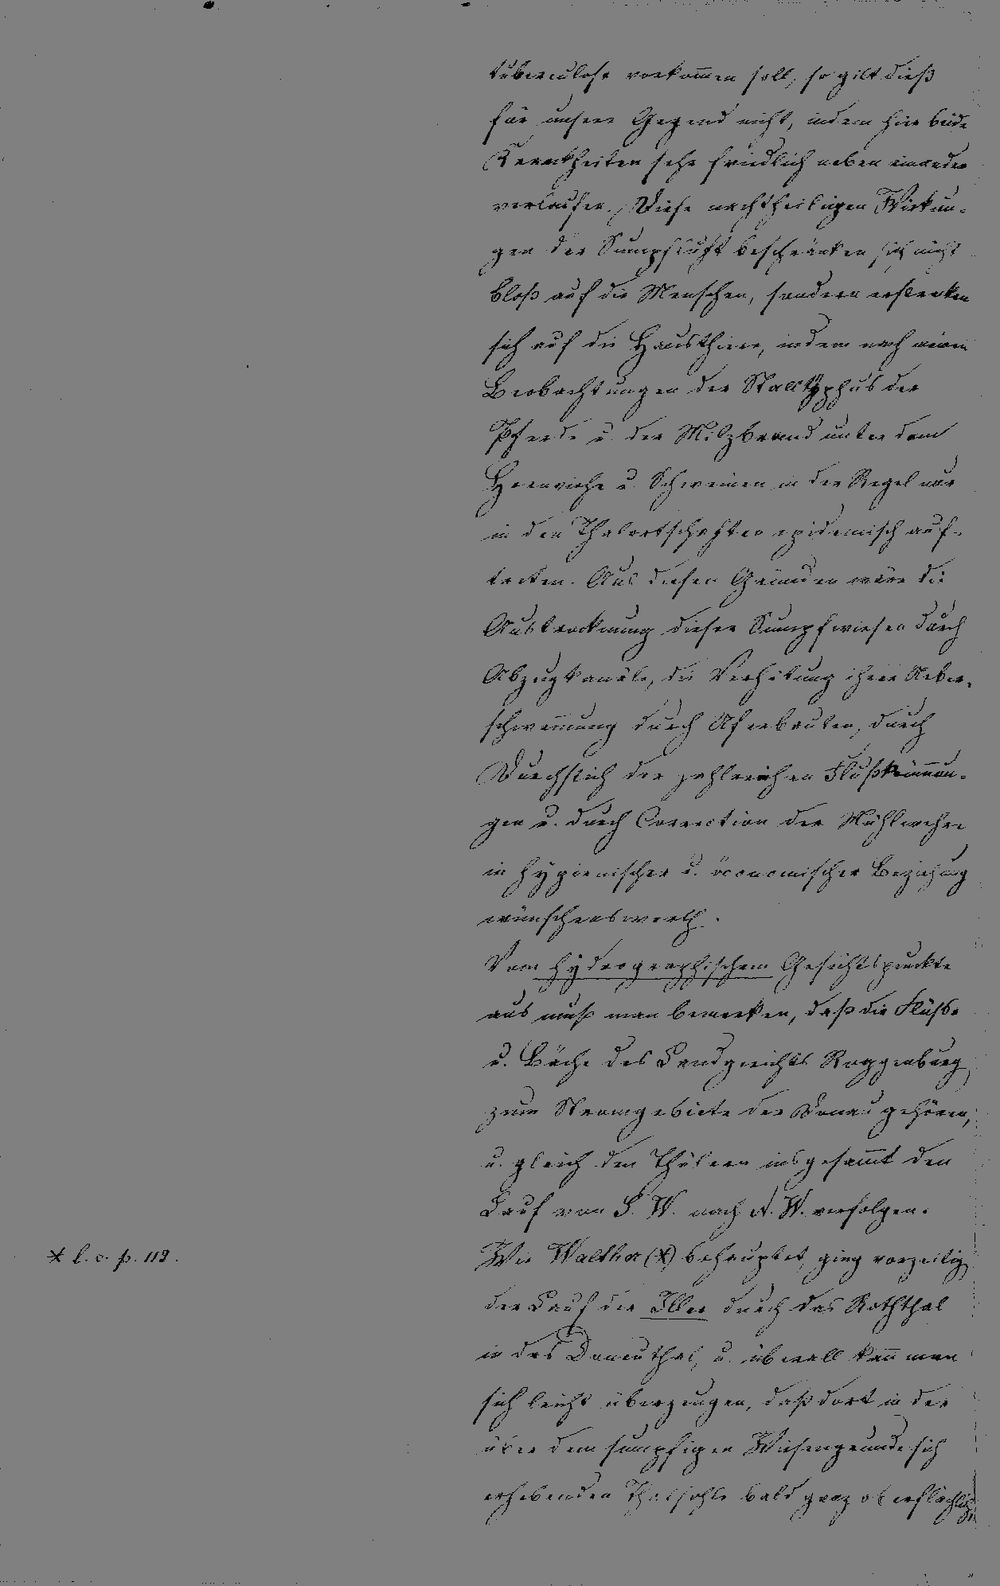 tuberculose vorkom̄en soll, so gilt dieß
für unsere Gegend nicht, indem hier beide
Krankheiten sehr friedlich neben einander
verlaufen. Diese nachtheiligen Wirkun-
gen der Sumpfluft beschränken sich nicht
bloß auf die Menschen, sondern erstrecken
sich auf die Hausthiere, indem nach
Beobachtungen der Stalltyphus der
Pferde u. der Milzbrand unter dem
Hornviehe u. Schweinen in der Regel nur
in den Thalortschaften epidemisch auf-
treten. Aus diesen Gründen wäre die
Austrocknung dieser Sumpfwiesen durch
Abzugkanäle, die Verhütung ihrer Ueber-
schwem̄ung durch Uferbauten, durch
Durchstich der zahlreichen Flußkrüm̄un-
gen u. durch Correction der Mühlwehre
in hygienischer u. öconomischer Beziehung
wünschenswerth.
Vom hydrographischen Gesichtspunkte
aus muß man bemerken, daß die Flüsse
u. Bäche des Landgerichts Roggenburg
zum Stromgebiete der Donau gehören,
u. gleich den Thälern insgesam̄t den
Lauf von S. W. nach N. W. verfolgen.
Wie Walther (*) behauptet, ging vorzeitig
der Lauf der Iller durch das Roththal
in das Donauthal, u. überall kan̄ man
sich leicht überzeugen, daß dort in der
über dem sumpfigen Wiesengrunde sich
erhebenden Thalsohle bald ganz oberflächlich,
* l. c. p. 112.